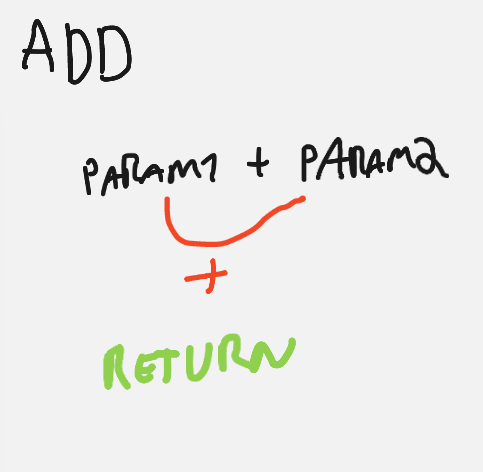 ADD
PARAM1 + PARAM2
+
RETURN